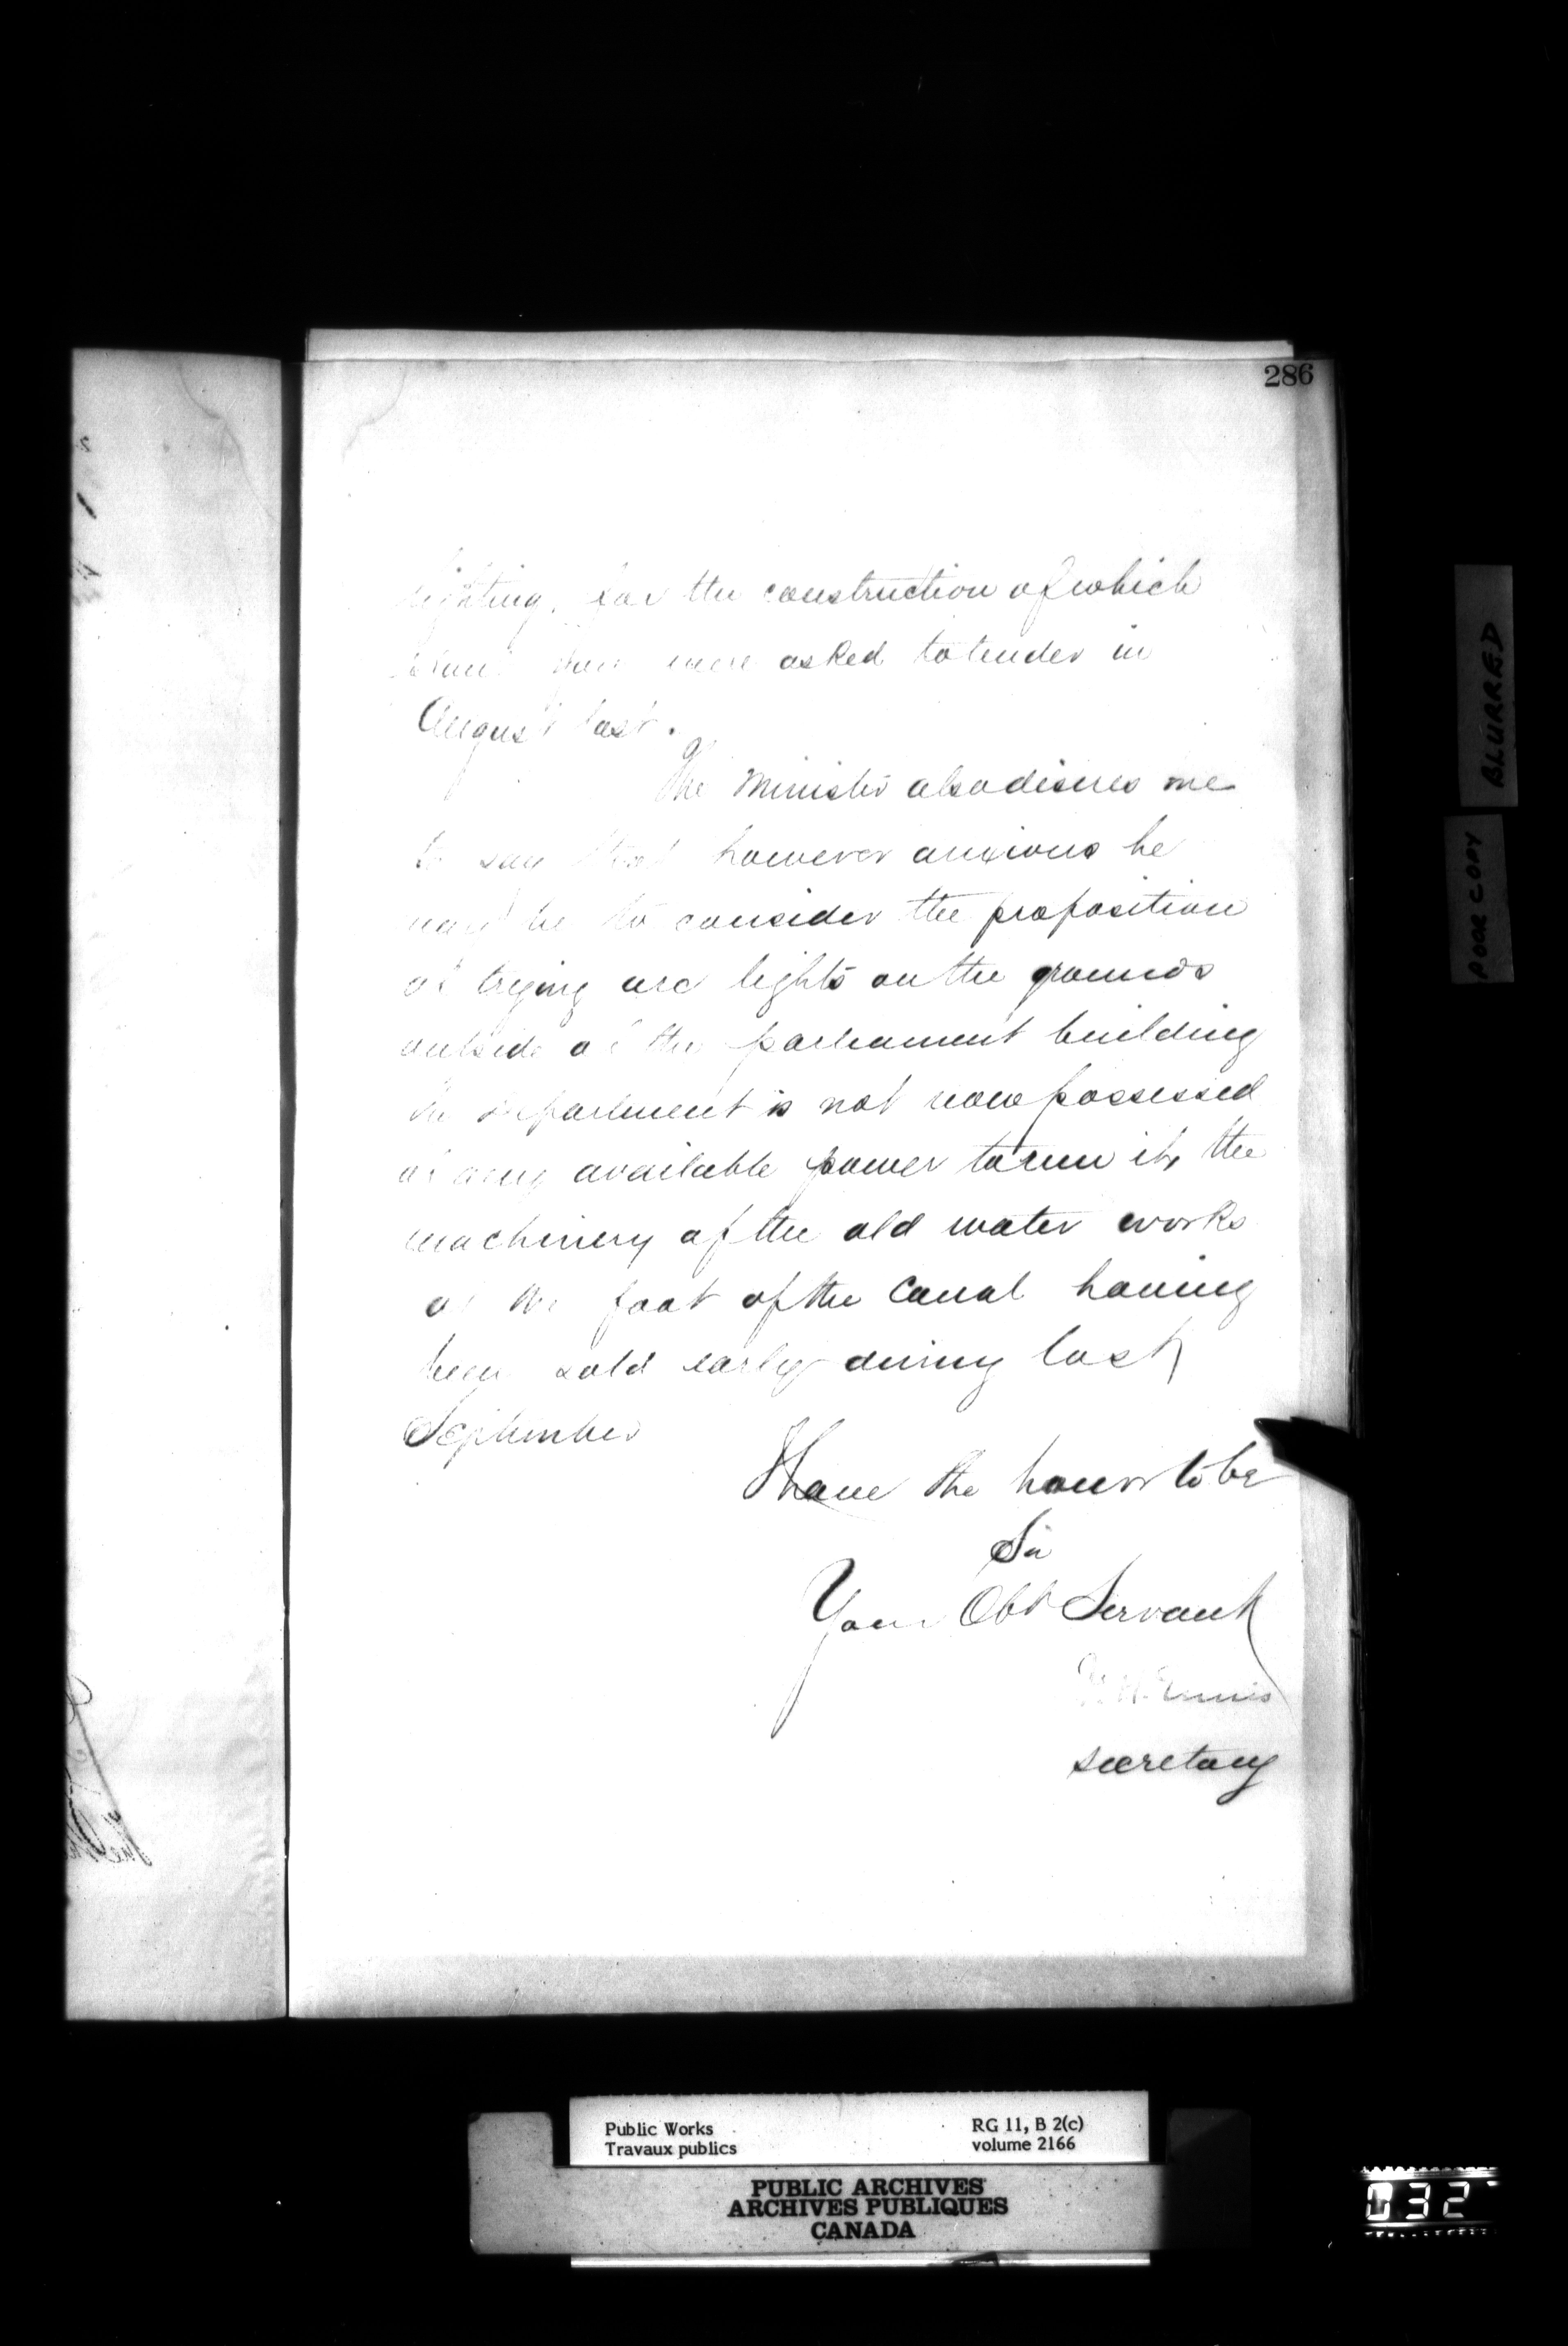 286
lighting, for the construction of which
you were asked to tender in
August last.
The Minister also desires me
to say that however anxious he
may be to consider the proposition
of trying arc lights on the grounds
outside of the parliament building
the department is not now possessed
of any available power to run it, the
machinery of the old water works
at the foot of the Canal having
been sold early during last
September
I have the honor to be
Sir
Your Obt Servant
Ennis
secretary
BLURRED
POOR COPY
Public Works
Travaux publics
RG 11, B 2(c)
volume 2166
PUBLIC ARCHIVES
ARCHIVES PUBLIQUES
CANADA
032